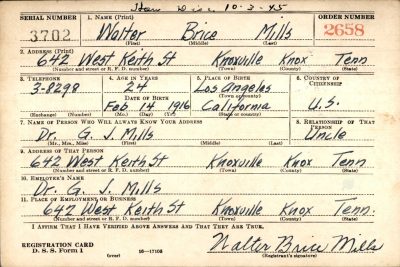 10-3-45
SERIAL NUMBER 1. NAME (Print) ORDER NUMBER
3702 Walter Brice Mills 2658
(First) (Middle) (Last)
2. ADDRESS (Print)
642 West Keith St Knoxville Knox Tenn
(Number and street or R. F. D. number) (Town) (County) (State)
3. TELEPHONE 4. AGE IN YEARS 5. PLACE OF BIRTH 6. COUNTRY OF CITIZENSHIP
3-8298 24 Los Angeles
DATE OF BIRTH (Town or county)
Feb 14 1916 California U.S.
(Exchange) (Number) (Mo.) (Day) (Yr.) (State or country)
7. NAME OF PERSON WHO WILL ALWAYS KNOW YOUR ADDRESS 8. RELATIONSHIP OF THAT PERSON
Dr. G. J. Mills Uncle
(Mr., Mrs., Miss) (First) (Middle) (Last)
9. ADDRESS OF THAT PERSON
642 West Keith St Knoxville Knox Tenn
(Number and street or R. F. D. number) (Town) (County) (State)
10. EMPLOYER'S NAME
Dr. G. J. Mills
11. PLACE OF EMPLOYMENT OR BUSINESS
642 West Keith St Knoxville Knox Tenn.
(Number and street or R. F. D. number) (Town) (County) (State)
I AFFIRM THAT I HAVE VERIFIED ABOVE ANSWERS AND THAT THEY ARE TRUE.
REGISTRATION CARD
D. S. S. Form 1 16-17105 Walter Brice Mills
(Registrant's signature)